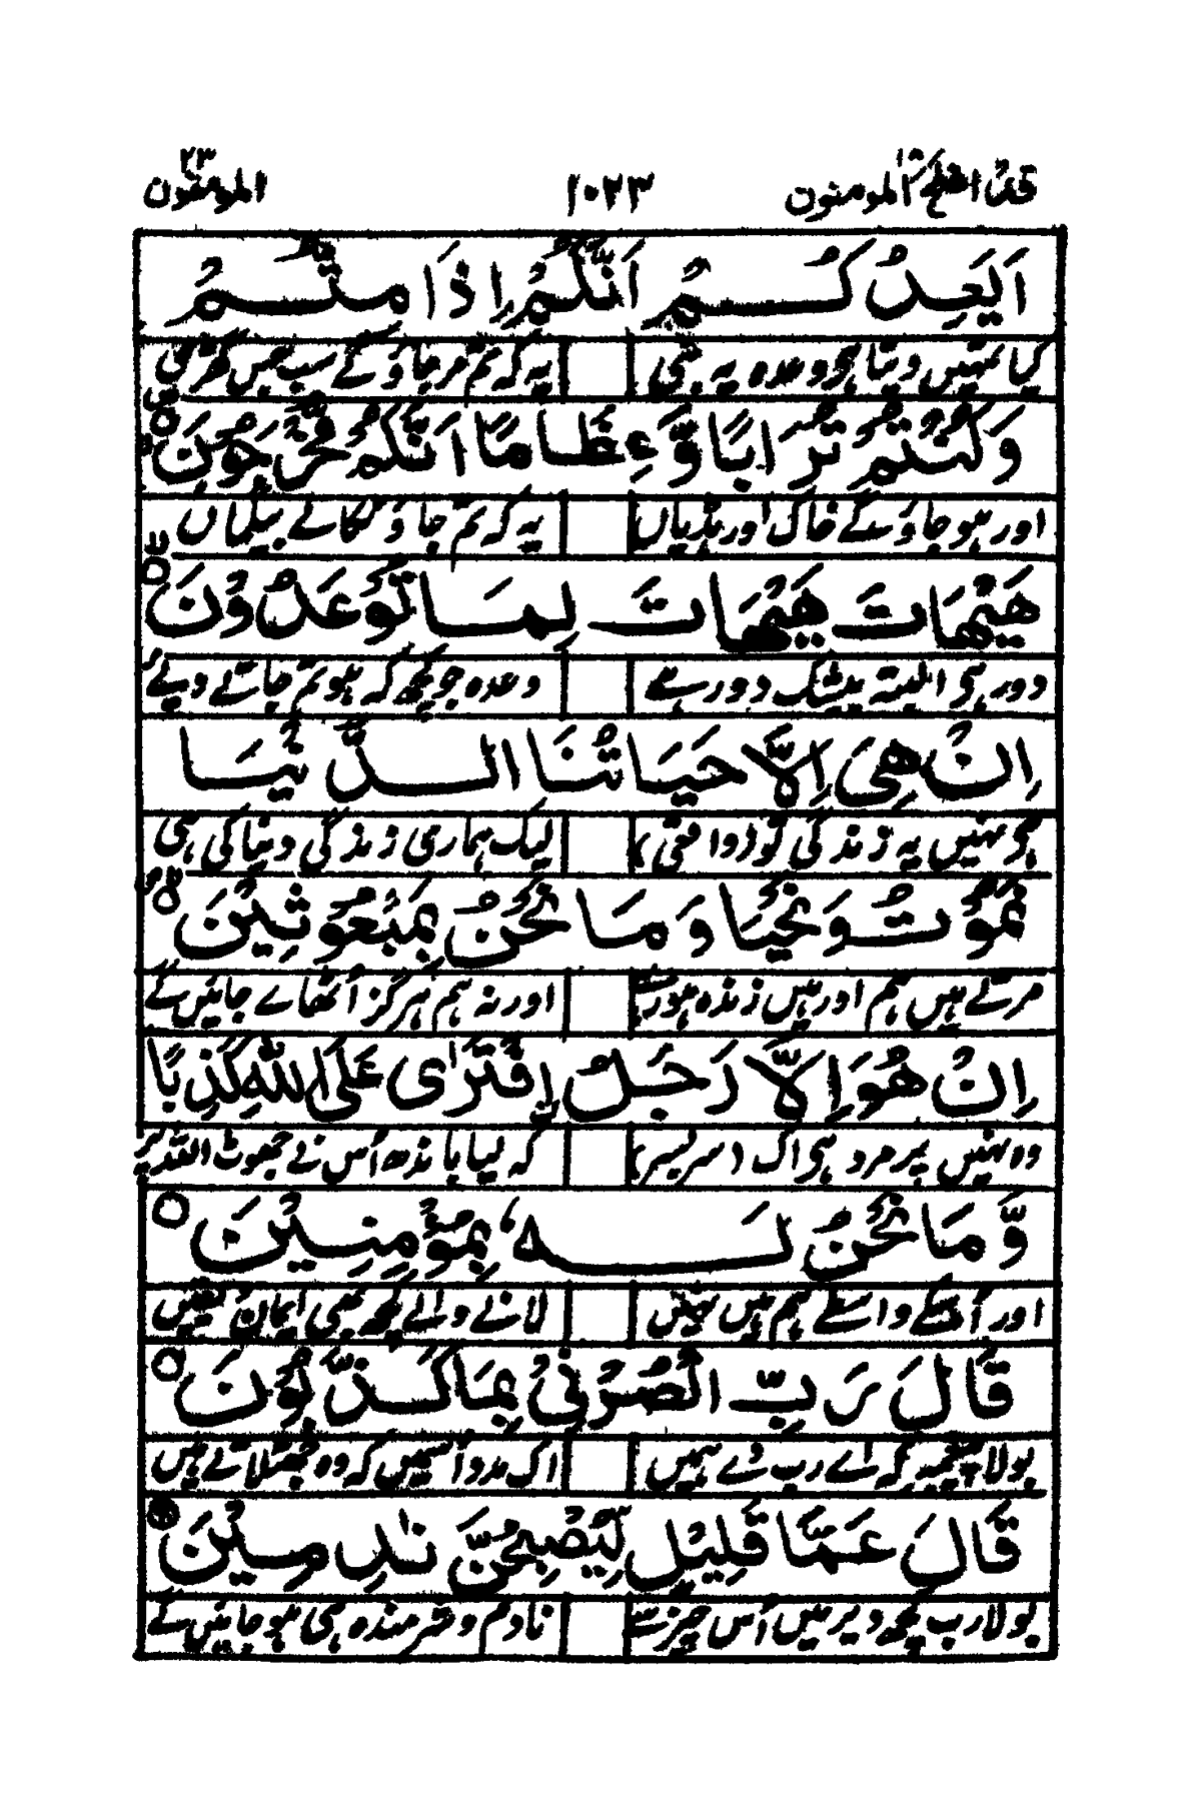 قد افلح ۱۸ المومنون ۱۰۲۳ المومنون ۲۳
اَيَعِدُكُمْ اَنَّكُمْ اِذَا مِتُّمْ
کیا نہیں دیتا ہے وعدہ یہ بھی یہ کہ تم مر جاؤ گے سب جس گھڑی
وَكُنْتُمْ تُرَابًا وَّعِظَامًا اَنَّكُمْ مُّخْرَجُوْنَ
اور ہو جاؤ گے خاک اور ہڈیاں یہ کہ تم جاؤ نکالے
هَيْهَاتَ هَيْهَاتَ لِمَا تُوْعَدُوْنَ
دور ہی البتہ بیشک دور ہے وعدہ جو کچھ کہ ہو تم جاتے دیئے
اِنْ هِيَ اِلَّا حَيَاتُنَا الدُّنْيَا
نہیں یہ زندگی تو لیک ہماری زندگی دنیا کی ہی
نَمُوْتُ وَنَحْيَا وَمَا نَحْنُ بِمَبْعُوْثِيْنَ
مرتے ہیں ہم اور ہیں زندہ ہوتے اور نہ ہم ہرگز اُٹھاے جائیں گے
اِنْ هُوَ اِلَّا رَجُلُ اِفْتَرٰى عَلَى اللّٰهِ كَذِبًا
وہ نہیں پر مرد ہی اک سربسر کہ لیا باندھ اُس نے جھوٹ اللہ پر
وَّمَا نَحْنُ لَهٗ بِمُؤْمِنِيْنَ
اور اُسکے واسطے ہم ہیں نہیں لانے والے کچھ بھی ایمان
قَالَ رَبِّ انْصُرْنِيْ بِمَا كَذَّبُوْنِ
بولا پیغمبر کہ اے رب دے ہمیں اک مدد کہ وہ جھٹلاتے ہیں
قَالَ عَمَّا قَلِيْلٍ لَّيُصْبِحُنَّ نٰدِمِيْنَ
بولا رب کچھ دیر میں اُس چیز سے نادم و شرمندہ ہی ہو جائیں گے